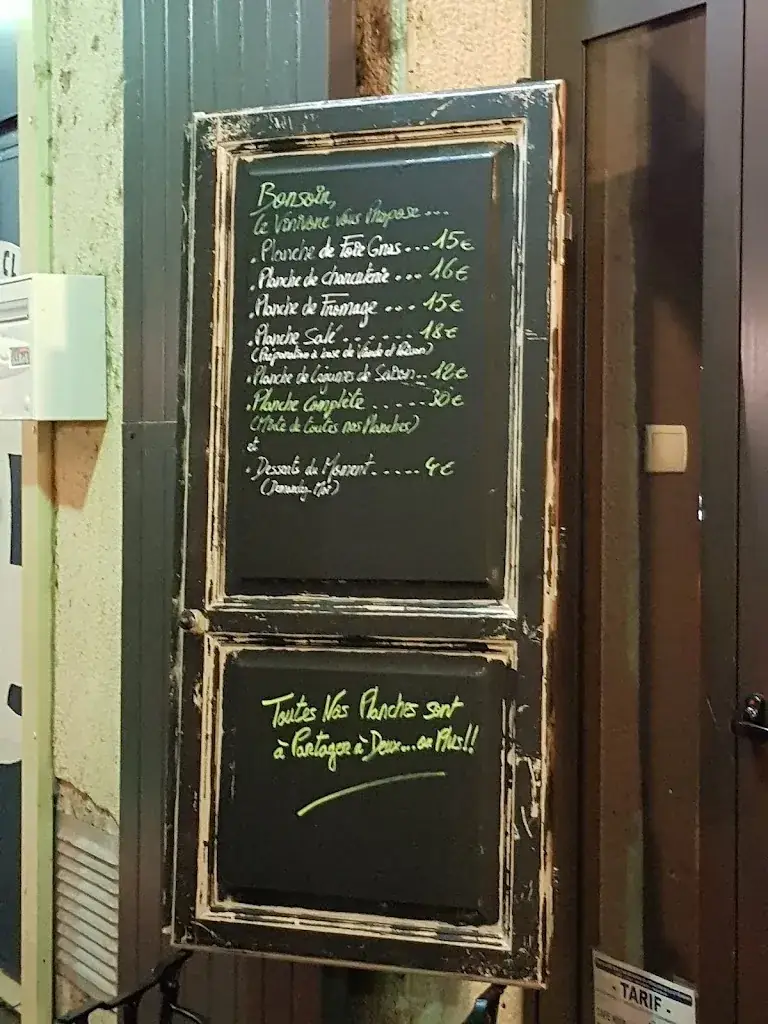 CL
Bonsoir,
Le Vinivane vous Propose ...
. Planche de Foie Gras ... 15€
. Planche de charcuterie ... 16€
. Planche de Fromage ... 15€
. Planche Salé ....... 18€
(Préparation à base de Viande et Poisson)
. Planche de Légumes de Saison .. 12€
. Planche Complète ...... 30€
(Mixte de toutes nos Planches)
et
. Desserts du Moment ..... 4€
(Demandez-Moi)
Toutes Nos Planches sont
à Partager à Deux... ou Plus!!
- TARIF -